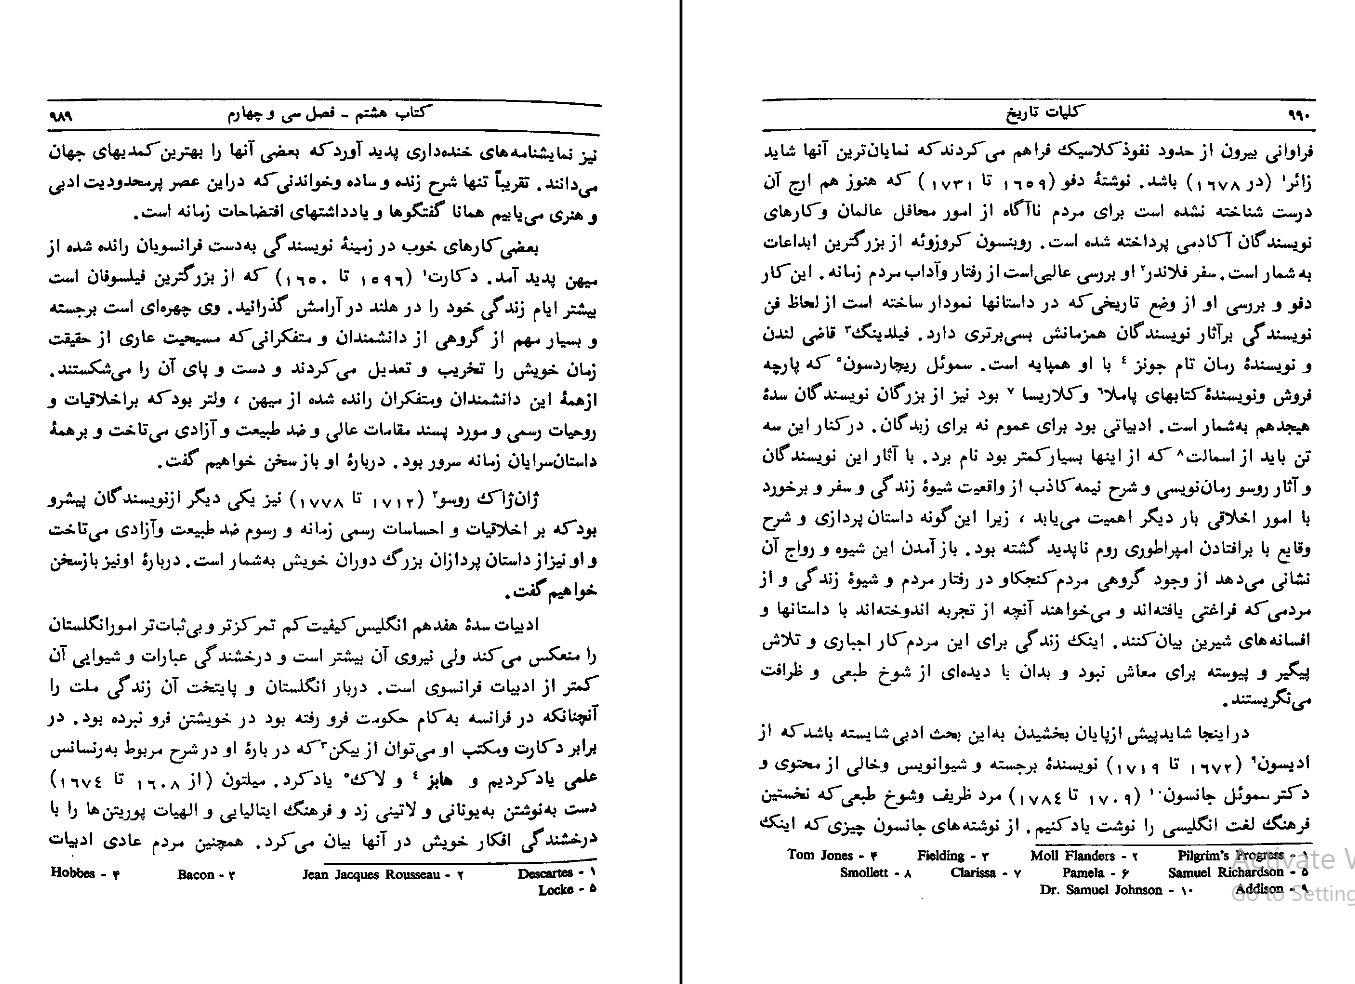 کتاب هشتم - فصل سی و چهارم
۹۸۹
نیز نمایشنامه‌های خنده‌داری پدید آورد که بعضی آنها را بهترین کمدیهای جهان
می‌دانند. تقریباً تنها شرح زنده و ساده و خواندنی که در این عصر پرمحدودیت ادبی
و هنری می‌یابیم همانا گفتگوها و یادداشتهای افتضاحات زمانه است.
بعضی کارهای خوب در زمینهٔ نویسندگی به‌دست فرانسویان رانده شده از
میهن پدید آمد. دکارت۱ (۱۵۹۶ تا ۱۶۵۰) که از بزرگترین فیلسوفان است
بیشتر ایام زندگی خود را در هلند در آرامش گذرانید. وی چهره‌ای است برجسته
و بسیار مهم از گروهی از دانشمندان و متفکرانی که مسیحیت عاری از حقیقت
زمان خویش را تخریب و تعدیل می‌کردند و دست و پای آن را می‌شکستند.
از همهٔ این دانشمندان و متفکران رانده شده از میهن ، ولتر بود که بر اخلاقیات و
روحیات رسمی و مورد پسند مقامات عالی و ضد طبیعت و آزادی می‌تاخت و برهمهٔ
داستان‌سرایان زمانه سرور بود. دربارهٔ او باز سخن خواهیم گفت.
ژان‌ژاک روسو۲ (۱۷۱۲ تا ۱۷۷۸) نیز یکی دیگر از نویسندگان پیشرو
بود که بر اخلاقیات و احساسات رسمی زمانه و رسوم ضد طبیعت و آزادی می‌تاخت
و او نیز از داستان پردازان بزرگ دوران خویش به‌شمار است. دربارهٔ او نیز باز سخن
خواهیم گفت.
ادبیات سدهٔ هفدهم انگلیس کیفیت کم تمرکزتر و بی‌ثبات‌تر امور انگلستان
را منعکس می‌کند ولی نیروی آن بیشتر است و درخشندگی عبارات و شیوایی آن
کمتر از ادبیات فرانسوی است. دربار انگلستان و پایتخت آن زندگی ملت را
آنچنانکه در فرانسه به‌کام حکومت فرو رفته بود در خویشتن فرو نبرده بود. در
برابر دکارت و مکتب او می‌توان از بیکن۳ که در بارهٔ او در شرح مربوط به‌رنسانس
علمی یاد کردیم و هابز ۴ و لاک۵ یاد کرد. میلتون (از ۱۶۰۸ تا ۱۶۷۴)
دست به‌نوشتن به‌یونانی و لاتینی زد و فرهنگ ایتالیایی و الهیات پوریتن‌ها را با
درخشندگی افکار خویش در آنها بیان می‌کرد. همچنین مردم عادی ادبیات
۱ - Descartes ۲ - Jean Jacques Rousseau ۳ - Bacon ۴ - Hobbes
۵ - Locke
۹۹۰
کلیات تاریخ
فراوانی بیرون از حدود نفوذ کلاسیک فراهم می‌کردند که نمایان‌ترین آنها شاید
زائر۱ (در ۱۶۷۸) باشد. نوشتهٔ دفو (۱۶۵۹ تا ۱۷۳۱) که هنوز هم ارج آن
درست شناخته نشده است برای مردم ناآگاه از امور محافل عالمان و کارهای
نویسندگان آکادمی پرداخته شده است. روبنسون کروزوئه از بزرگترین ابداعات
به شمار است. سفر فلاندر۲ او بررسی عالیی‌است از رفتار و آداب مردم زمانه. این کار
دفو و بررسی او از وضع تاریخی که در داستانها نمودار ساخته است از لحاظ فن
نویسندگی برآثار نویسندگان همزمانش بسی‌برتری دارد. فیلدینگ۳ قاضی لندن
و نویسندهٔ رمان تام جونز ۴ با او همپایه است. سموئل ریچاردسون۵ که پارچه
فروش و نویسندهٔ کتابهای پاملا۶ و کلاریسا ۷ بود نیز از بزرگان نویسندگان سدهٔ
هیجدهم به‌شمار است. ادبیاتی بود برای عموم نه برای زبدگان. در کنار این سه
تن باید از اسمالت۸ که از اینها بسیار کمتر بود نام برد. با آثار این نویسندگان
و آثار روسو رمان‌نویسی و شرح نیمه کاذب از واقعیت شیوهٔ زندگی و سفر و برخورد
با امور اخلاقی بار دیگر اهمیت می‌یابد ، زیرا این گونه داستان پردازی و شرح
وقایع با برافتادن امپراطوری روم ناپدید گشته بود. باز آمدن این شیوه و رواج آن
نشانی می‌دهد از وجود گروهی مردم کنجکاو در رفتار مردم و شیوهٔ زندگی و از
مردمی که فراغتی یافته‌اند و می‌خواهند آنچه از تجربه اندوخته‌اند با داستانها و
افسانه‌های شیرین بیان کنند. اینک زندگی برای این مردم کار اجباری و تلاش
پیگیر و پیوسته برای معاش نبود و بدان با دیده‌ای از شوخ طبعی و ظرافت
می‌نگریستند.
در اینجا شاید پیش از پایان بخشیدن به‌این بحث ادبی شایسته باشد که از
ادیسون۹ (۱۶۷۲ تا ۱۷۱۹) نویسندهٔ برجسته و شیوانویس و خالی از محتوی و
دکتر سموئل جانسون۱۰ (۱۷۰۹ تا ۱۷۸۴) مرد ظریف و شوخ طبعی که نخستین
فرهنگ لغت انگلیسی را نوشت یاد کنیم. از نوشته‌های جانسون چیزی که اینک
۱ - Pilgrim's Progress ۲ - Moll Flanders ۳ - Fielding ۴ - Tom Jones
۵ - Samuel Richardson ۶ - Pamela ۷ - Clarissa ۸ - Smollett
۹ - Addison ۱۰ - Dr. Samuel Johnson
Activate
Go to Setting